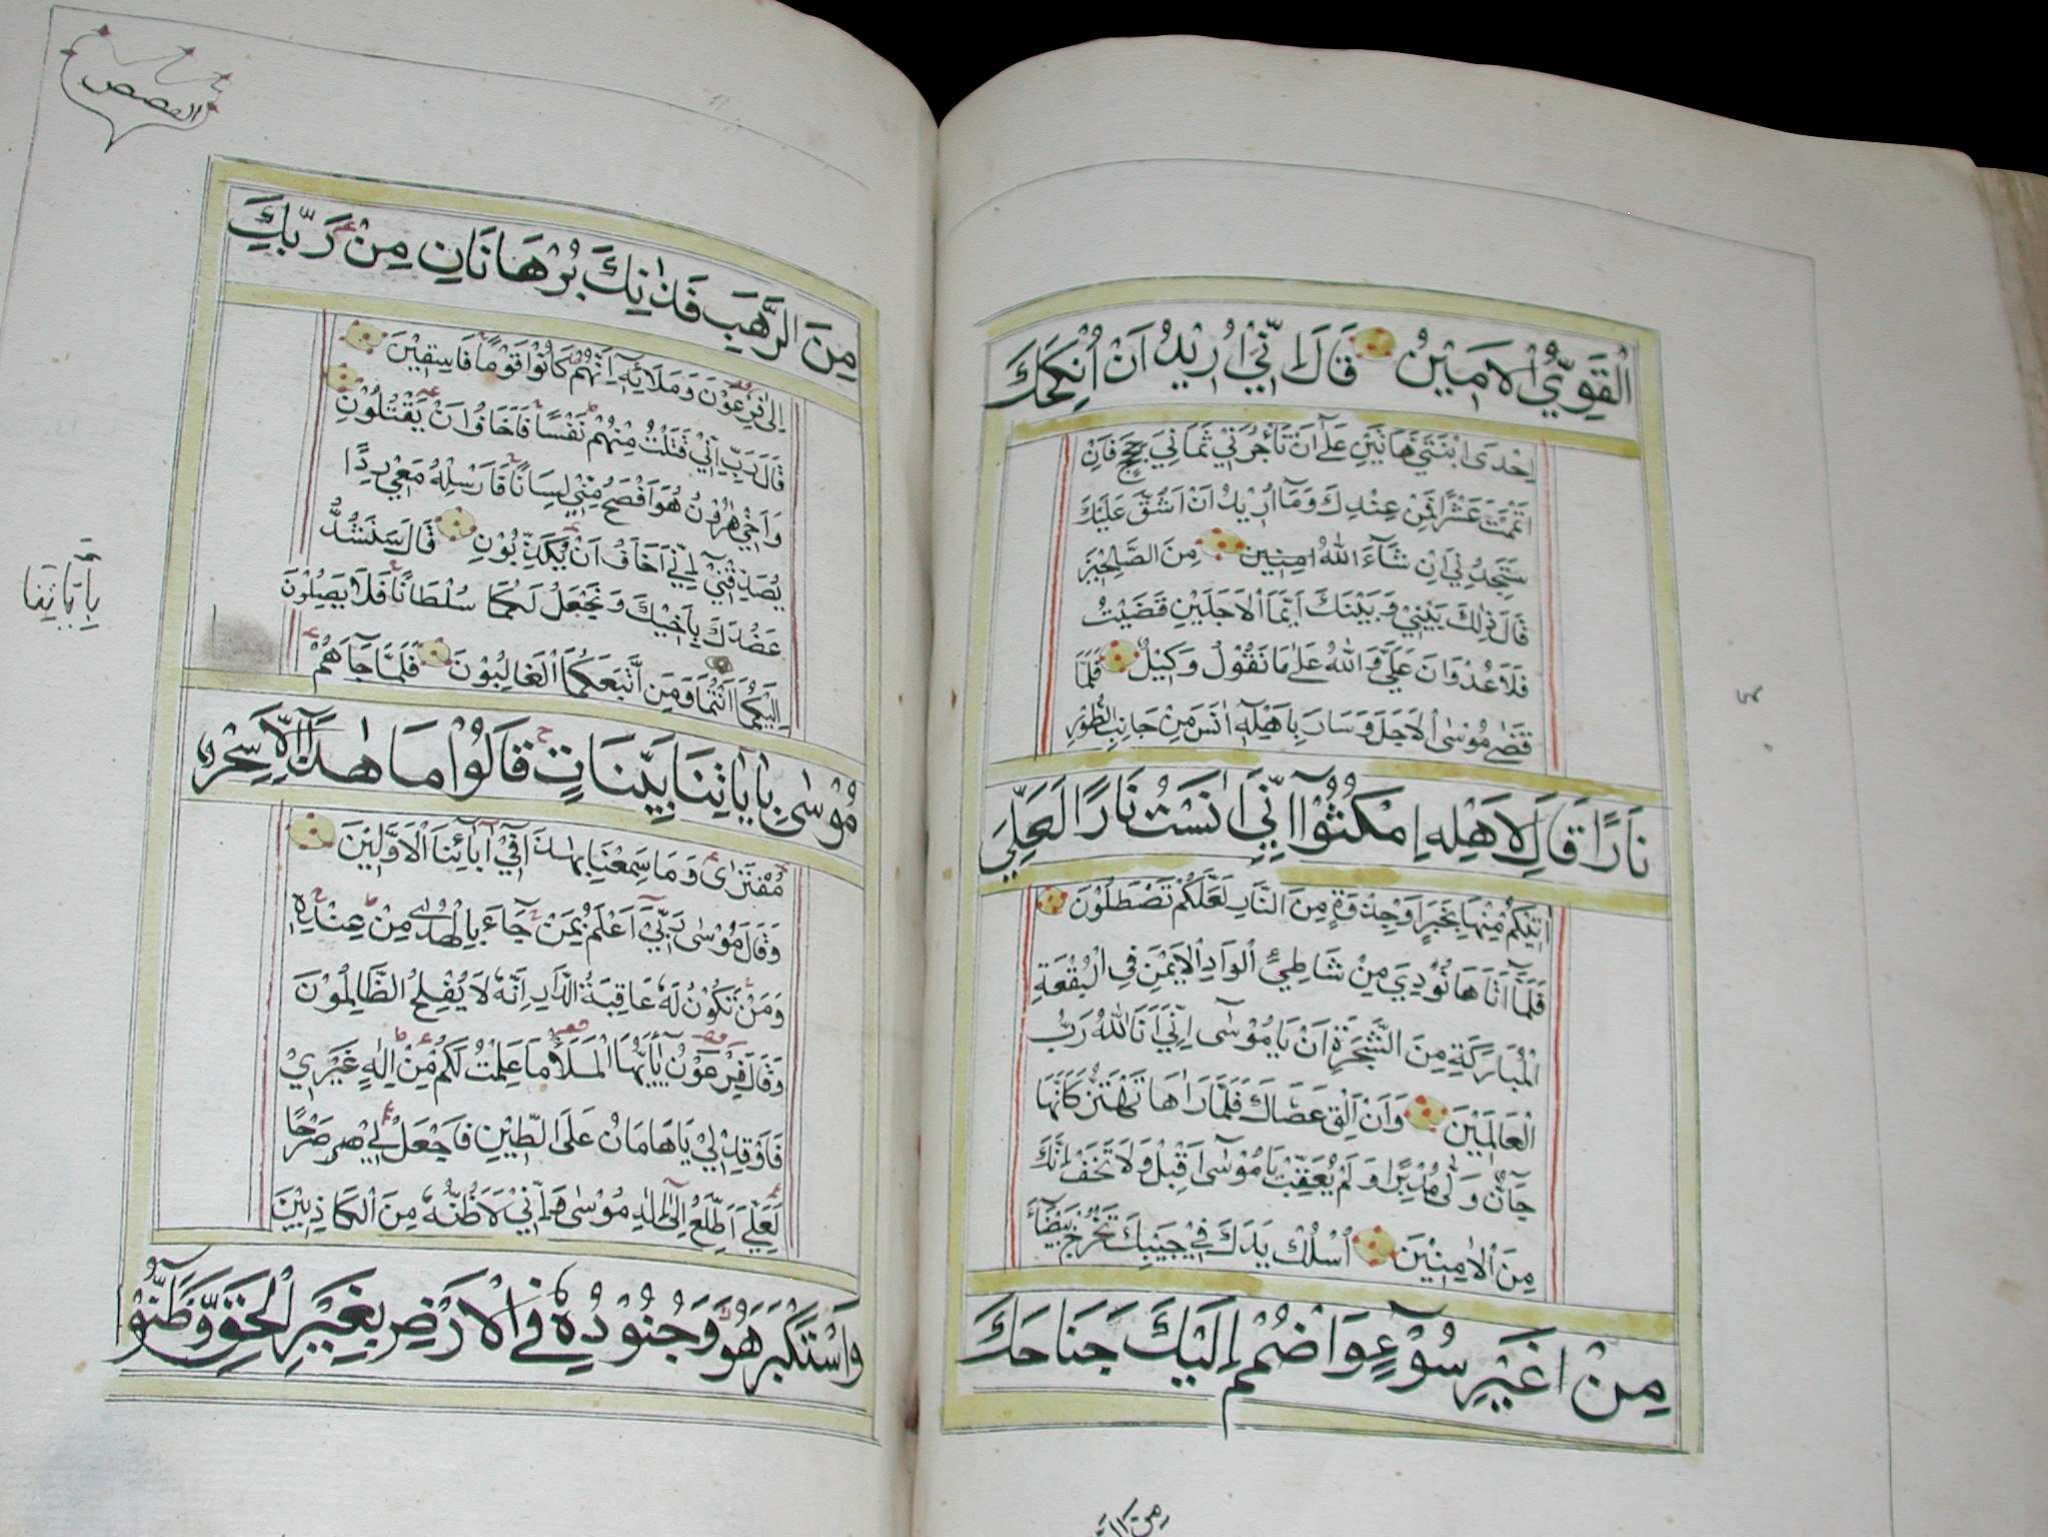 الْقَوِيُّ الْاَمِيْنُ قَالَ اِنِّيْ اُرِيْدُ اَنْ اُنْكِحَكَ
اِحْدَى ابْنَتَيَّ هَاتَيْنِ عَلٰٓى اَنْ تَأْجُرَنِيْ ثَمَانِيَ حِجَجٍ فَاِنْ
اَتْمَمْتَ عَشْرًا فَمِنْ عِنْدِكَ وَمَآ اُرِيْدُ اَنْ اَشُقَّ عَلَيْكَ
سَتَجِدُنِيْ اِنْ شَآءَ اللّٰهُ امِنِين مِنَ الصَّلِحِيْنَ
قَالَ ذٰلِكَ بَيْنِيْ وَبَيْنَكَ اَيَّمَا الْاَجَلَيْنِ قَضَيْتُ
فَلَا عُدْوَانَ عَلَيَّ وَاللّٰهُ عَلٰى مَا نَقُوْلُ وَكِيْلٌ فَلَمَّا
قَضٰى مُوْسَى الْاَجَلَ وَسَارَ بِاَهْلِهٖٓ اٰنَسَ مِنْ جَانِبِ الطُّوْرِ
نَارًا قَالَ لِاَهْلِهِ امْكُثُوْٓا اِنِّيْٓ اٰنَسْتُ نَارًا لَعَلِّيْ
اٰتِيْكُمْ مِنْهَا بِخَبَرٍ اَوْ جِذْوَةٍ مِنَ النَّارِ لَعَلَّكُمْ تَصْطَلُوْنَ
فَلَمَّآ اَتَاهَا نُوْدِيَ مِنْ شَاطِئِ الْوَادِ الْاَيْمَنِ فِي الْبُقْعَةِ
الْمُبَارَكَةِ مِنَ الشَّجَرَةِ اَنْ يَا مُوْسٰٓى اِنِّيْٓ اَنَا اللّٰهُ رَبُّ
الْعَالَمِيْنَ وَاَنْ اَلْقِ عَصَاكَ فَلَمَّا رَاٰهَا تَهْتَزُّ كَاَنَّهَا
جَآنٌّ وَلّٰى مُدْبِرًا وَلَمْ يُعَقِّبْ يَا مُوْسٰٓى اَقْبِلْ وَلَا تَخَفْ اِنَّكَ
مِنَ الْاٰمِنِيْنَ اُسْلُكْ يَدَكَ فِيْ جَيْبِكَ تَخْرُجْ بَيْضَآءَ
مِنْ غَيْرِ سُوْٓءٍ وَاضْمُمْ اِلَيْكَ جَنَاحَكَ
القصص
مِنَ الرَّهْبِ فَذَانِكَ بُرْهَانَانِ مِنْ رَبِّكَ
اِلٰى فِرْعَوْنَ وَمَلَائِهٖ اِنَّهُمْ كَانُوْا قَوْمًا فَاسِقِيْنَ
قَالَ رَبِّ اِنِّيْ قَتَلْتُ مِنْهُمْ نَفْسًا فَاَخَافُ اَنْ يَقْتُلُوْنِ
وَاَخِيْ هٰرُوْنُ هُوَ اَفْصَحُ مِنِّيْ لِسَانًا فَاَرْسِلْهُ مَعِيَ رِدْءًا
يُصَدِّقُنِيْٓ اِنِّيْٓ اَخَافُ اَنْ يُكَذِّبُوْنِ قَالَ سَنَشُدُّ
عَضُدَكَ بِاَخِيْكَ وَنَجْعَلُ لَكُمَا سُلْطَانًا فَلَا يَصِلُوْنَ
اِلَيْكُمَا اَنْتُمَا وَمَنِ اتَّبَعَكُمَا الْغَالِبُوْنَ فَلَمَّا جَآءَهُمْ
بِاٰيَاتِنَا
مُوْسٰى بِاٰيَاتِنَا بَيِّنَاتٍ قَالُوْا مَا هٰذَآ اِلَّا سِحْرٌ
مُفْتَرًى وَمَا سَمِعْنَا بِهٰذَا فِيْٓ اٰبَآئِنَا الْاَوَّلِيْنَ
وَقَالَ مُوْسٰى رَبِّيْٓ اَعْلَمُ بِمَنْ جَآءَ بِالْهُدٰى مِنْ عِنْدِهٖ
وَمَنْ تَكُوْنُ لَهُ عَاقِبَةُ الدَّارِ اِنَّهُ لَا يُفْلِحُ الظَّالِمُوْنَ
وَقَالَ فِرْعَوْنُ يٰٓاَيُّهَا الْمَلَاُ مَا عَلِمْتُ لَكُمْ مِنْ اِلٰهٍ غَيْرِيْ
فَاَوْقِدْ لِيْ يَا هَامَانُ عَلَى الطِّيْنِ فَاجْعَلْ لِيْ صَرْحًا
لَعَلِّيْٓ اَطَّلِعُ اِلٰٓى اِلٰهِ مُوْسٰى وَاِنِّيْ لَاَظُنُّهُ مِنَ الْكَاذِبِيْنَ
وَاسْتَكْبَرَ هُوَ وَجُنُوْدُهُ فِي الْاَرْضِ بِغَيْرِ الْحَقِّ وَظَنُّوْا